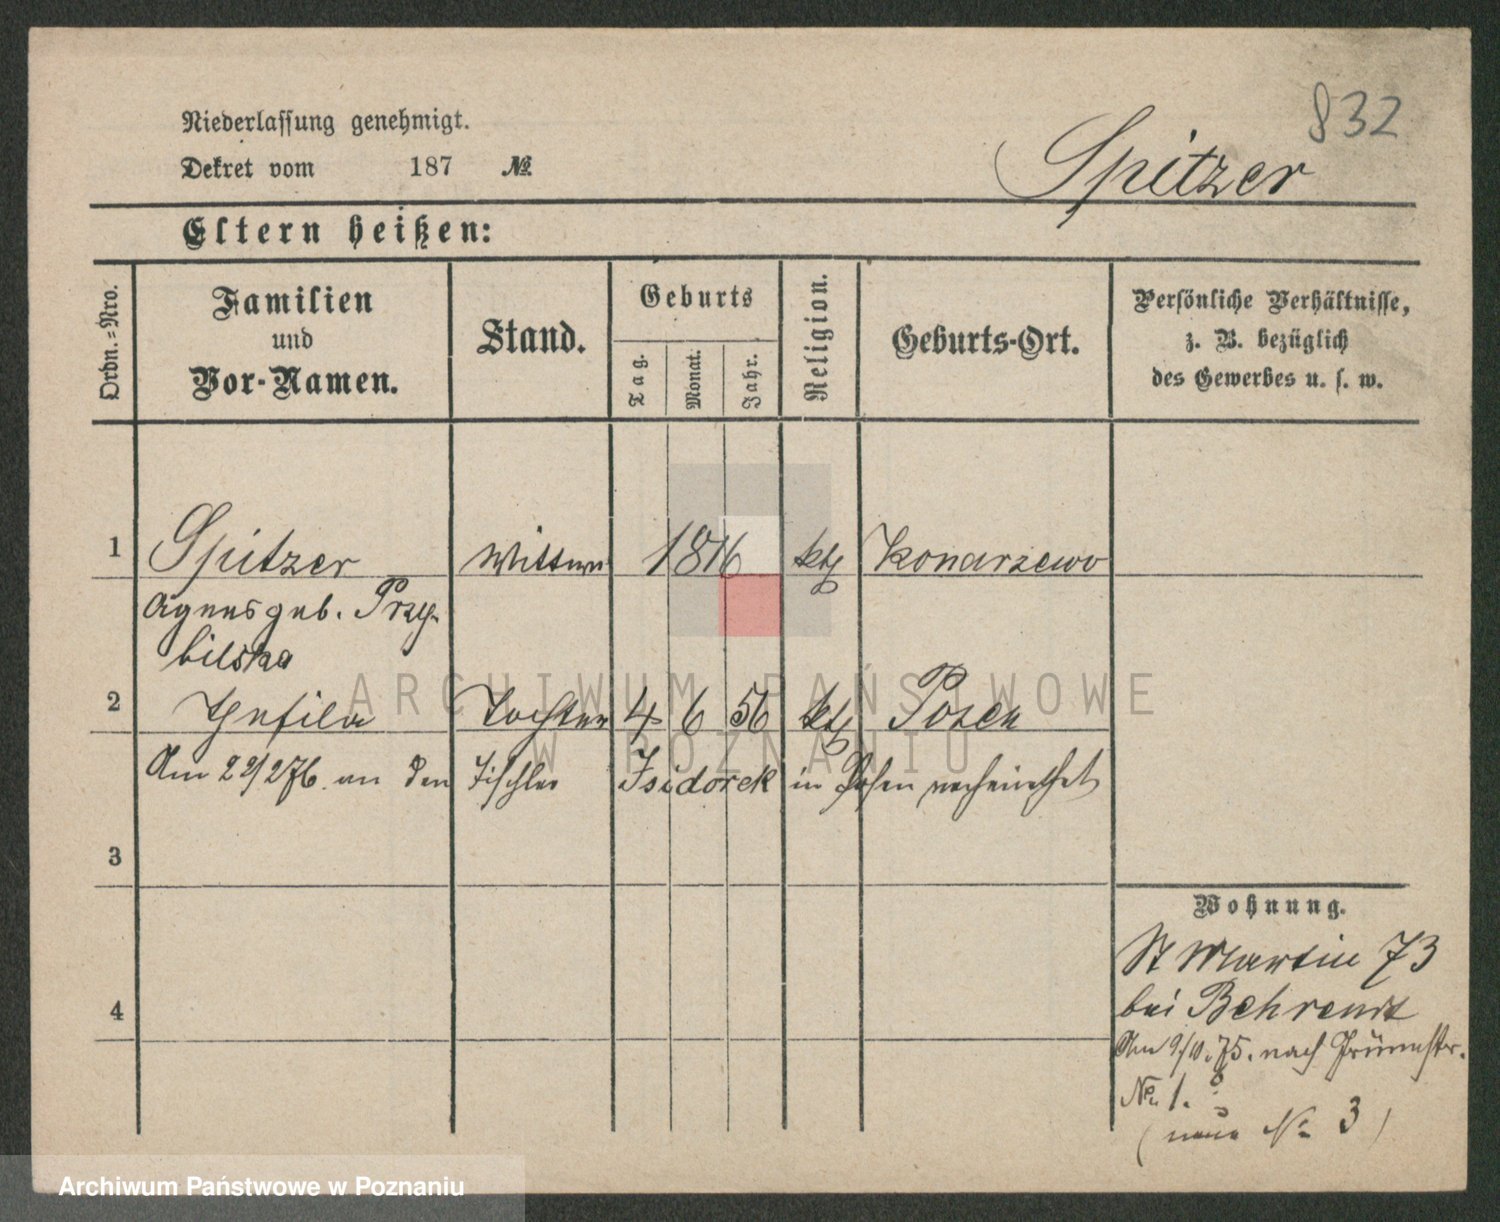 832
Niederlassung genehmigt.
Dekret vom 187 №
Spitzer
Eltern heißen:
Ordn.-Nro.
Familien und Vor-Namen.
Stand.
Geburts
Tag.
Monat.
Jahr.
Religion.
Geburts-Ort.
Persönliche Verhältnisse,
z. B. bezüglich
des Gewerbes u. s. w.
1 Spitzer Wittwe 1816 kth Konarzewo
Agnes geb. Przy-
bilska
2 Tochter 4 6 56 kth Posen
Am 22/2 76. an den Tischler Isidorek in Posen verheirathet
3
4
Wohnung.
St Martin 73
bei Behrendt
Am 9/10. 75. nach
No. 1.
(neue No 3)
ARCHIWUM PAŃSTWOWE
W POZNANIU
Archiwum Państwowe w Poznaniu